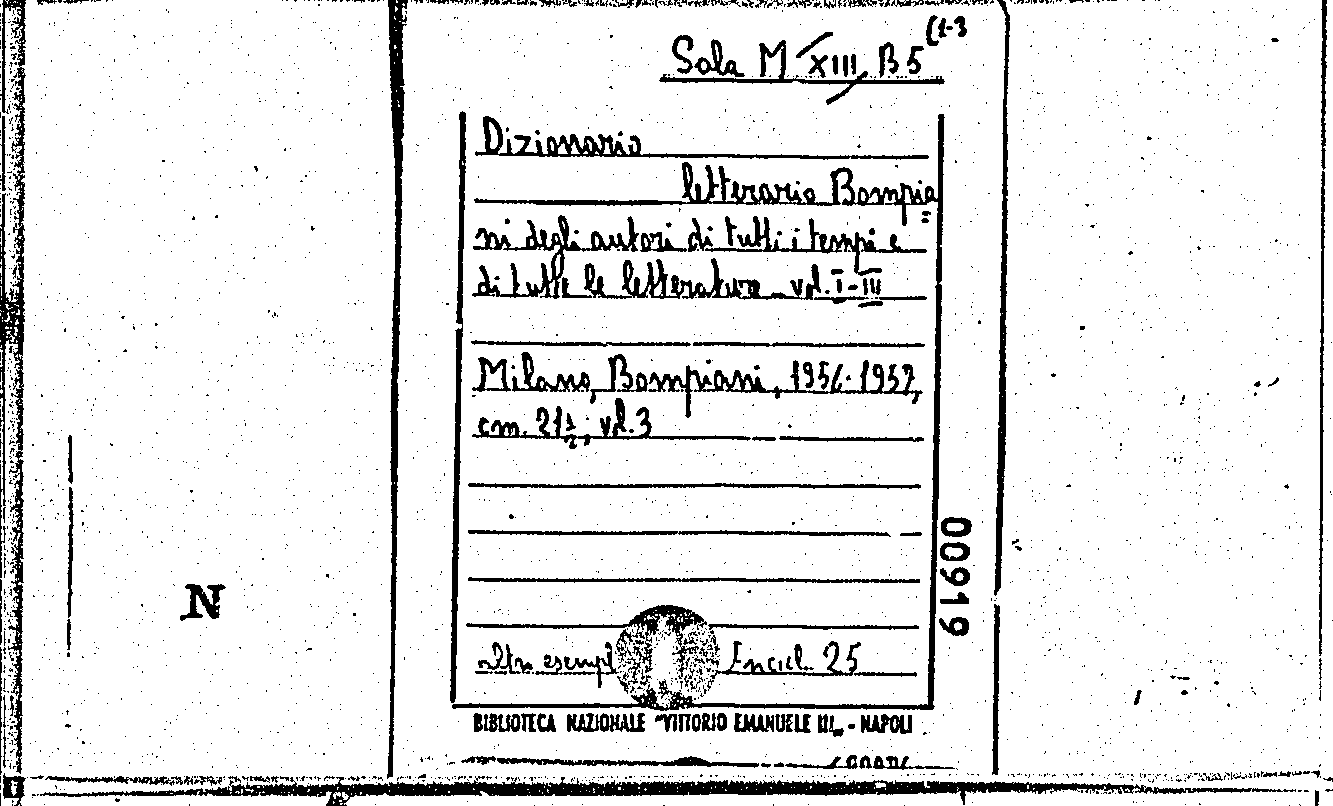 (1-3
Sala M XIII B 5
Dizionario
letterario Bompia=
ni degli autori di tutti i tempi e
di tutte le letterature vol. I-III
Milano, Bompiani, 1956-1957,
cm. 21½; vol. 3
00919
N
altro esempl Encicl. 25
BIBLIOTECA NAZIONALE "VITTORIO EMANUELE III„ - NAPOLI